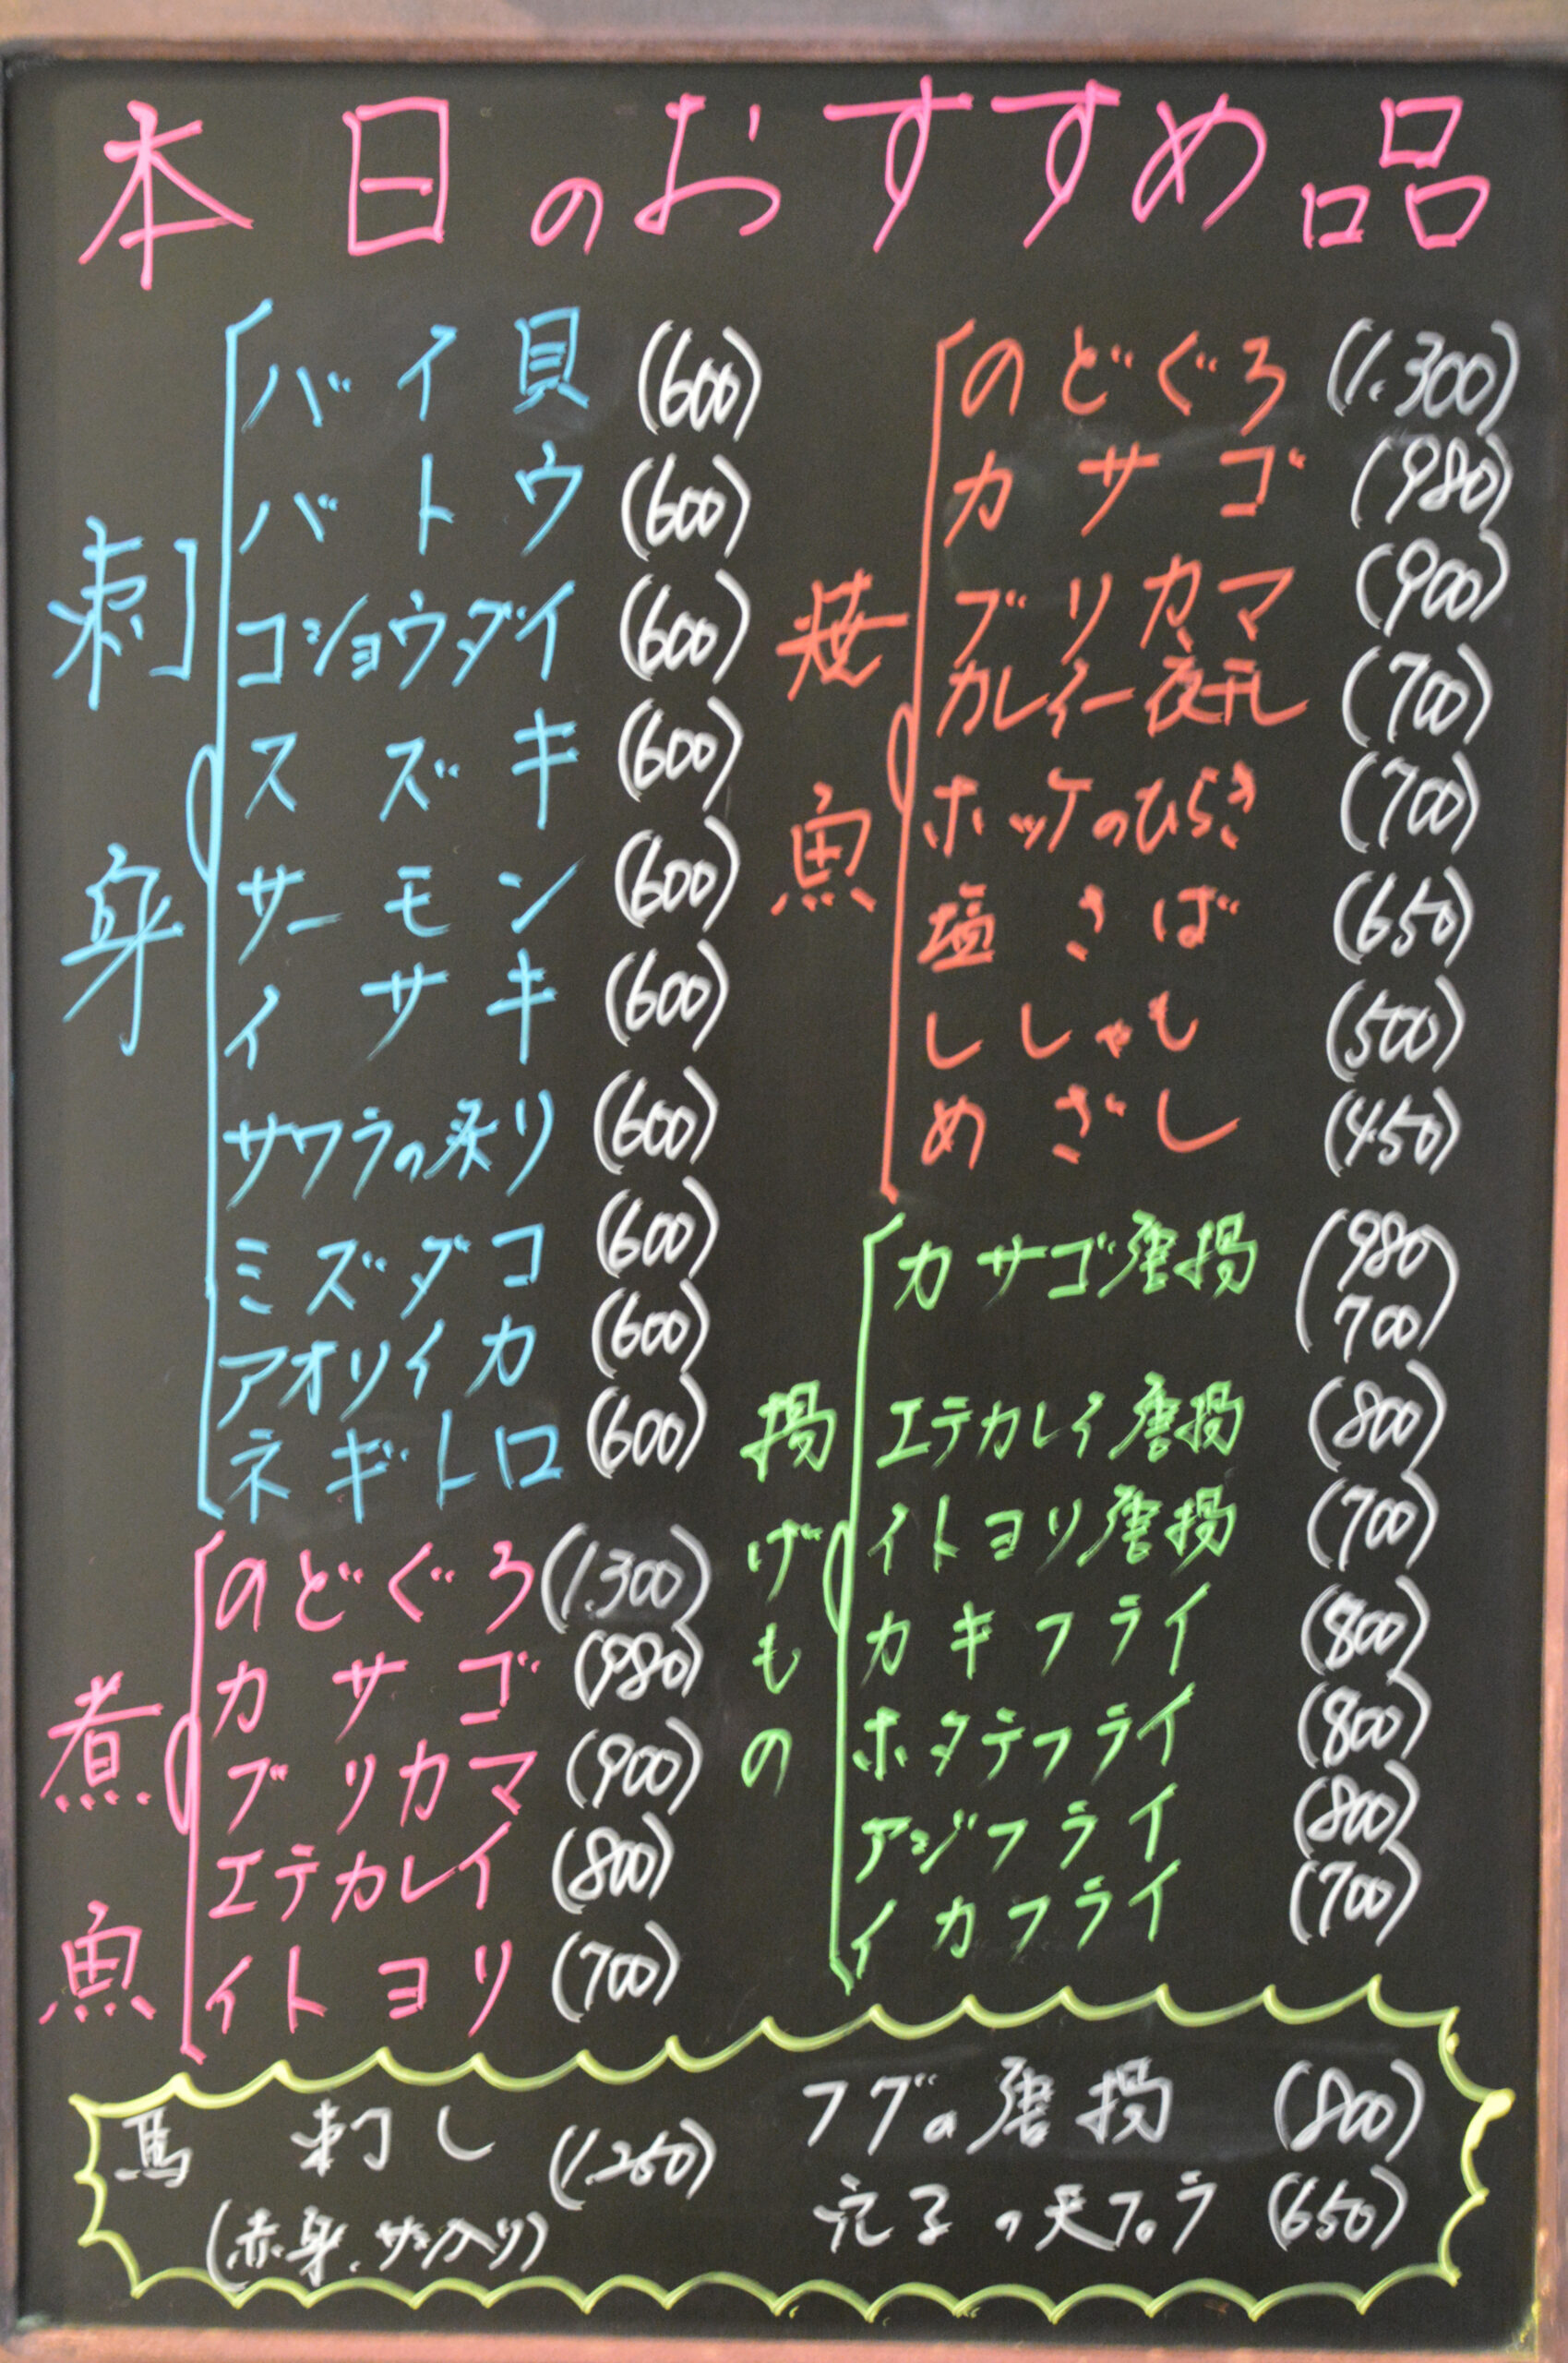 本日のおすすめ品
刺身
バイ貝 (600)
バトウ (600)
コショウダイ (600)
スズキ (600)
サーモン (600)
イサキ (600)
サワラの炙り (600)
ミズダコ (600)
アオリイカ (600)
ネギトロ (600)
煮魚
のどぐろ (1.300)
カサゴ (980)
ブリカマ (900)
エテカレイ (800)
イトヨリ (700)
焼魚
のどぐろ (1.300)
カサゴ (980)
ブリカマ (900)
カレイ一夜干し (700)
ホッケのひらき (700)
塩さば (650)
ししゃも (500)
めざし (450)
揚げもの
カサゴ唐揚 (980
700)
エテカレイ唐揚 (800)
イトヨリ唐揚 (700)
カキフライ (800)
ホタテフライ (800)
アジフライ (800)
イカフライ (700)
馬刺し (1.260)
(赤身、サシ入り)
フグの唐揚 (800)
の天プラ (650)